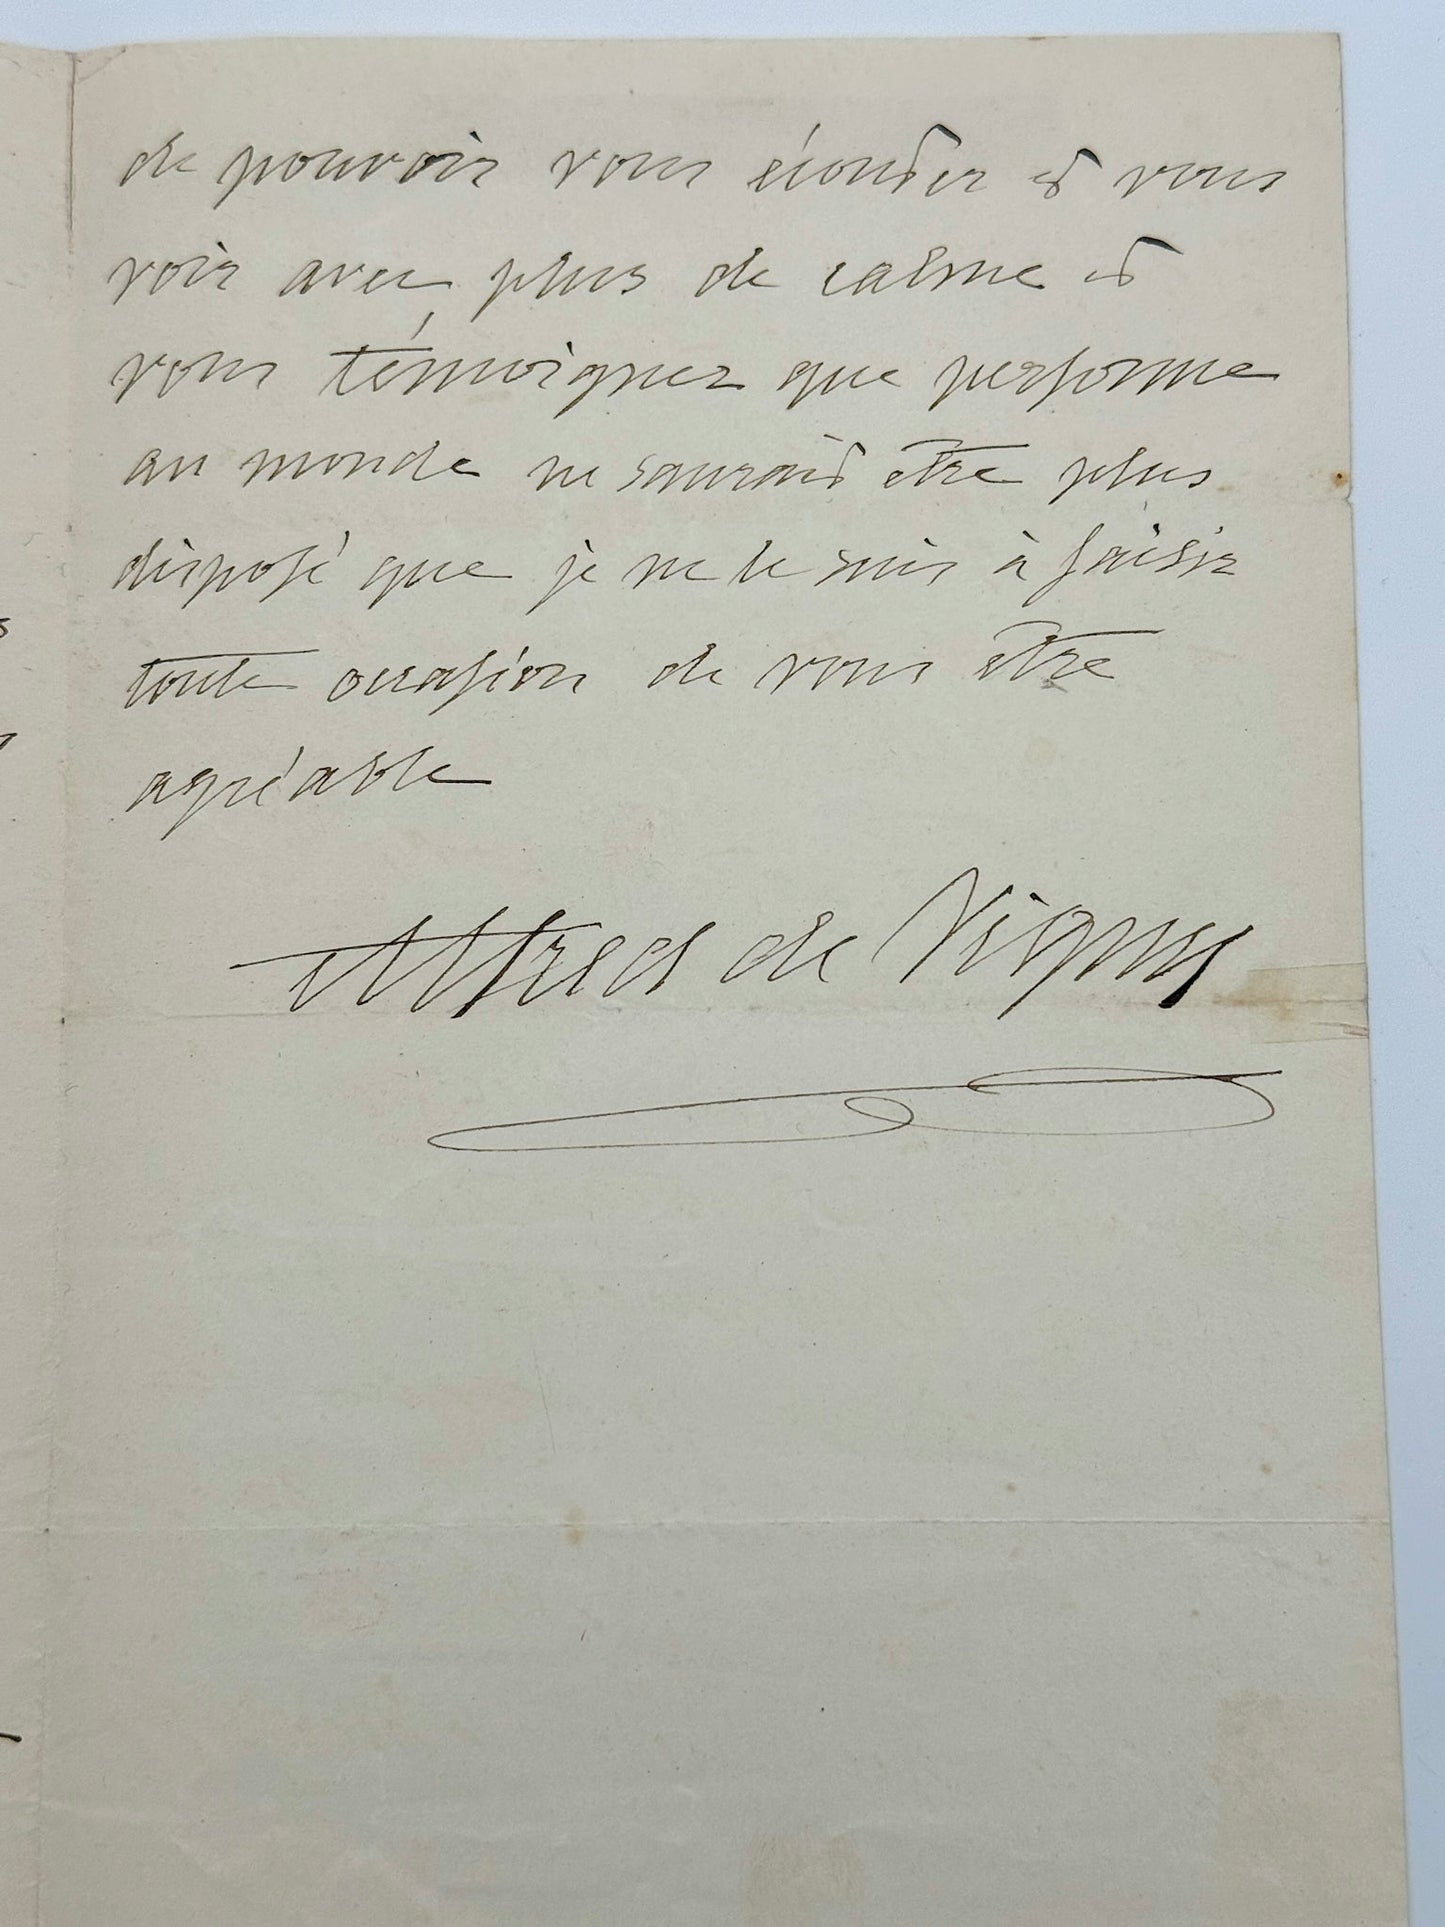 de pouvoir vous écouter et vous
voir avec plus de calme et
vous témoigner que personne
au monde ne saurait être plus
disposé que je ne le suis à saisir
toute occasion de vous être
agréable
Alfred de Vigny